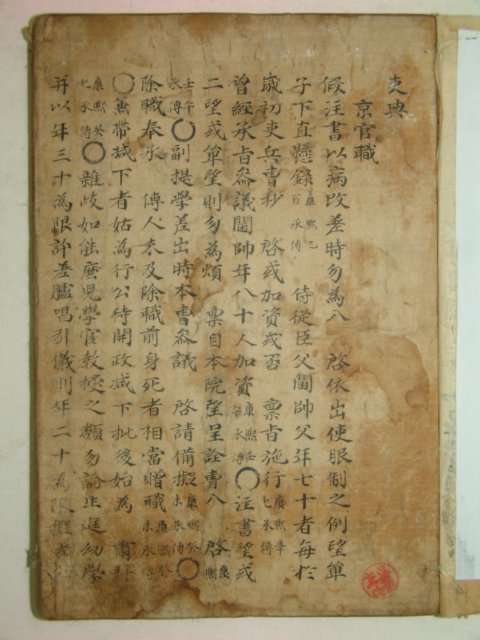 吏典
京官職
假注書以病改差時勿爲入 啓依出使服制之例望單
子下直懸錄康熙乙酉承傳 侍從臣父閫帥父年七十者每於
歲初吏兵曹抄 啓或加資或否 稟旨施行康熙辛巳承傳
曾經承旨參議閫帥年八十人加資康熙壬午承傳○注書望或
二望或單望則勿爲煩 稟自本院望呈銓曹入 啓康熙
壬午承傳○副提學差出時本曹參議 啓請備擬康熙癸未承傳○
除職奉承 傳人未及除職前身死者相當贈職康熙癸未承傳
○兼帶試下者姑爲行公待開政減下批後始爲 肅拜
康熙癸巳承傳○雜歧如 學官教授之類勿論生進幼學
幷以年三十爲限許差臚唱引儀則年二十爲限